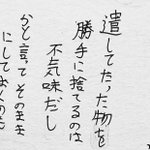 遺していった物を
勝手に捨てるのは
不気味だし
かと言ってそのまま
にしておくのも